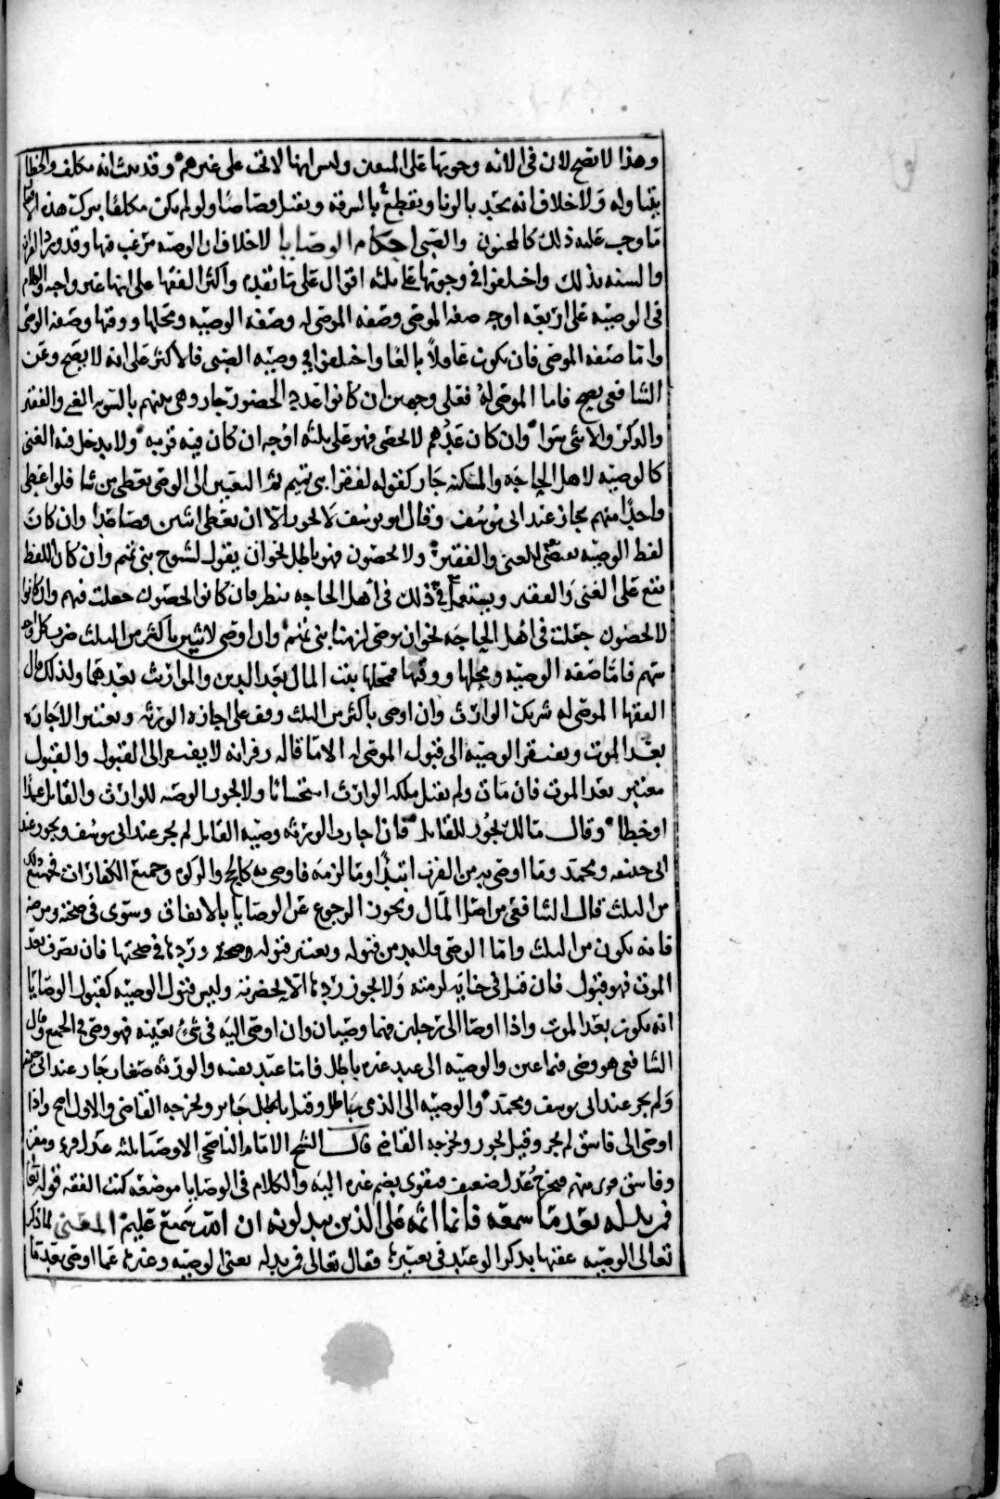 وهذا لا يصح لان في الاية وجوبها على المتقين وليس انها لا تجب على غيرهم وقد بينا انه مكلف والخطاب
يتناوله ولا خلاف انه يحد بالزنا ويقطع بالسرقه ويقتل قصاصا ولو لم يكن مكلفا بترك هذه
ما وجب عليه ذلك كالمجنون والصبي احكام الوصايا لا خلاف ان الوصيه مرغب فيها وقد ورد القران
والسنه بذلك واختلفوا في وجوبها على ثلثه اقوال على ما تقدم واكثر الفقها على انها غير واجبه والكلام
في الوصيه على اربعه اوجه صفه الموصي وصفه الموصى له وصفه الوصيه ومحلها ووقتها وصفه الوصي
واما صفه الموصي فان يكون عاقلا بالغا واختلفوا في وصيه الصبي فالاكثر على انه لا يصح وعن
الشافعي يصح فاما الموصى له فعلى وجهين ان كانوا عدد الحضور جاز وهي بينهم بالسويه الغني والفقير
والذكر والانثى سوا وان كان عددهم لا يحصى فهو على ثلثه اوجه ان كان فيه قربه ولا يدخل فيه الغني
كالوصيه لاهل الحاجه والمسكنه جاز كقوله لفقرا بني تميم ثم التعيين الى الوصي يعطي من شا فلو اعطى
واحدا منهم يجاز عند ابي يوسف وقال ابو يوسف لا يجوز الا ان يعطي اثنين فصاعدا وان كان
لفظ الوصيه يقتضي للغني والفقير ولا يحصون فهو باطل نحو ان يقول لشيوخ بني تميم وان كان اللفظ
يقع على الغني والفقير ويستعمل في ذلك في اهل الحاجه ينظر فان كانوا يحصون جعلت فيهم وان كانوا
لا يحصون جعلت في اهل الحاجه نحو ان يوصي لزمنا بني تميم وان اوصى لاثنين باكثر من الثلث ضرب كل واحد
سهم فاما صفه الوصيه ومحلها ووقتها فمحلها ثلث المال بعد الدين والمواريث بعدهما ولذلك قال
الفقها الموصى له شريك الوارث وان اوصى باكثر من الثلث وقف على اجازه الورثه ويعتبر الاجازه
بعد الموت ويفتقر الوصيه الى قبول الموصى له الا ما قاله زفر انه لا يفتقر الى القبول والقبول
معتبر بعد الموت فان مات ولم يقبل ملكه الوارث استحسانا ولا يجوز الوصيه للوارث والقاتل عمدا
او خطا وقال مالك يجوز للقاتل فان اجازت الورثه وصيه القاتل لم يجز عند ابي يوسف ويجوز عند
ابي حنيفه ومحمد وما اوصى به من القرب ابتدا وما لزمه فاوصى به كالحج والزكوه وجميع الكفارات فجميع ذلك
من الثلث قال الشافعي من اصل المال ويجوز الرجوع عن الوصايا بالاتفاق وسوى في صحته ومرضه
فانه يكون من الثلث واما الوصي فلا بد من قبوله ويعتبر قبوله وصحه وردها في صحتها فان تصرف بعد
الموت فهو قبول فان قبل في حياته لزمته ولا يجوز ردها الا بحضرته وليس قبول الوصيه كقبول الوصايا
انه يكون بعد الموت واذا اوصا الى رجلين فهما وصيان وان اوصى اليه في شئ بعينه فهو وصي في الجميع وقال
الشافعي هو وصي فيما عين والوصيه الى عبد غيره باطل فاما عبد نفسه والورثه صغار جاز عند ابي حنيفه
ولم يجز عند ابي يوسف ومحمد والوصيه الى الذمي باطل وقيل باطل جايز ويخرجه القاضي والاول اصح واذا
اوصى الى فاسق لم يجز وقيل يجوز ويخرجه القاضي قال الشيخ الامام الناصحي الاوصيا ثلثه عدل قوي
وفاسق قوي متهم فيخرج عدل ضعيف فيقوى بضم غيره اليه والكلام في الوصايا موضعه كتب الفقه قوله تعالى
فمن بدله بعد ما سمعه فانما اثمه على الذين يبدلونه ان الله سميع عليم المعنى لما ذكر
تعالى الوصيه عقبها بذكر الوعيد في تغييرها فقال تعالى فمن بدله يعني الوصيه وغيرها عما اوصى بعد ما